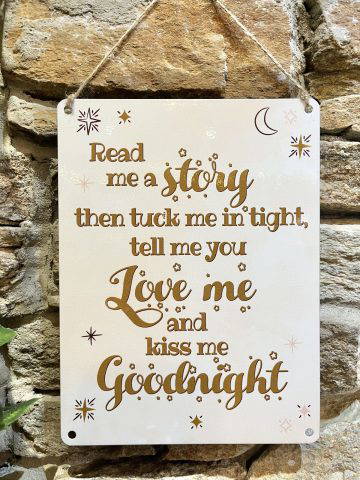 Read
me a story
then tuck me in tight,
tell me you
Love me
and
kiss me
Goodnight